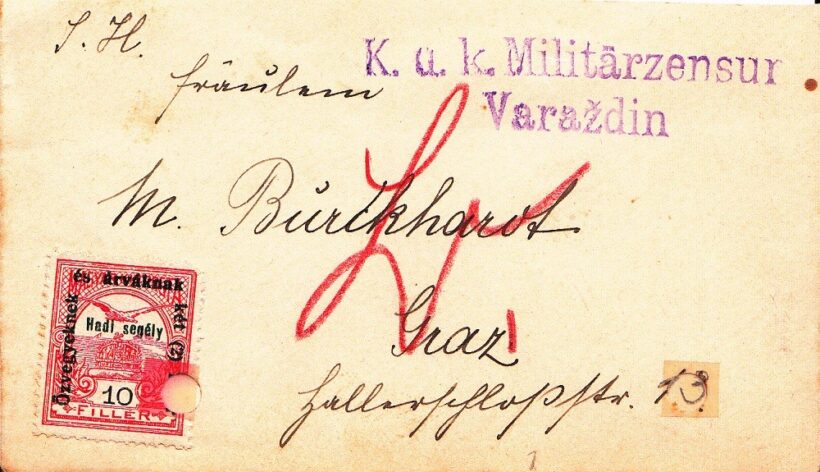 S. H.
K. u. k. Militärzensur
Varaždin
Fräulein
M. Burckhardt
Graz
Hallerschloßstr. 13.
Özvegyeknek
és árváknak
két (2)
Hadi segély
10
FILLER